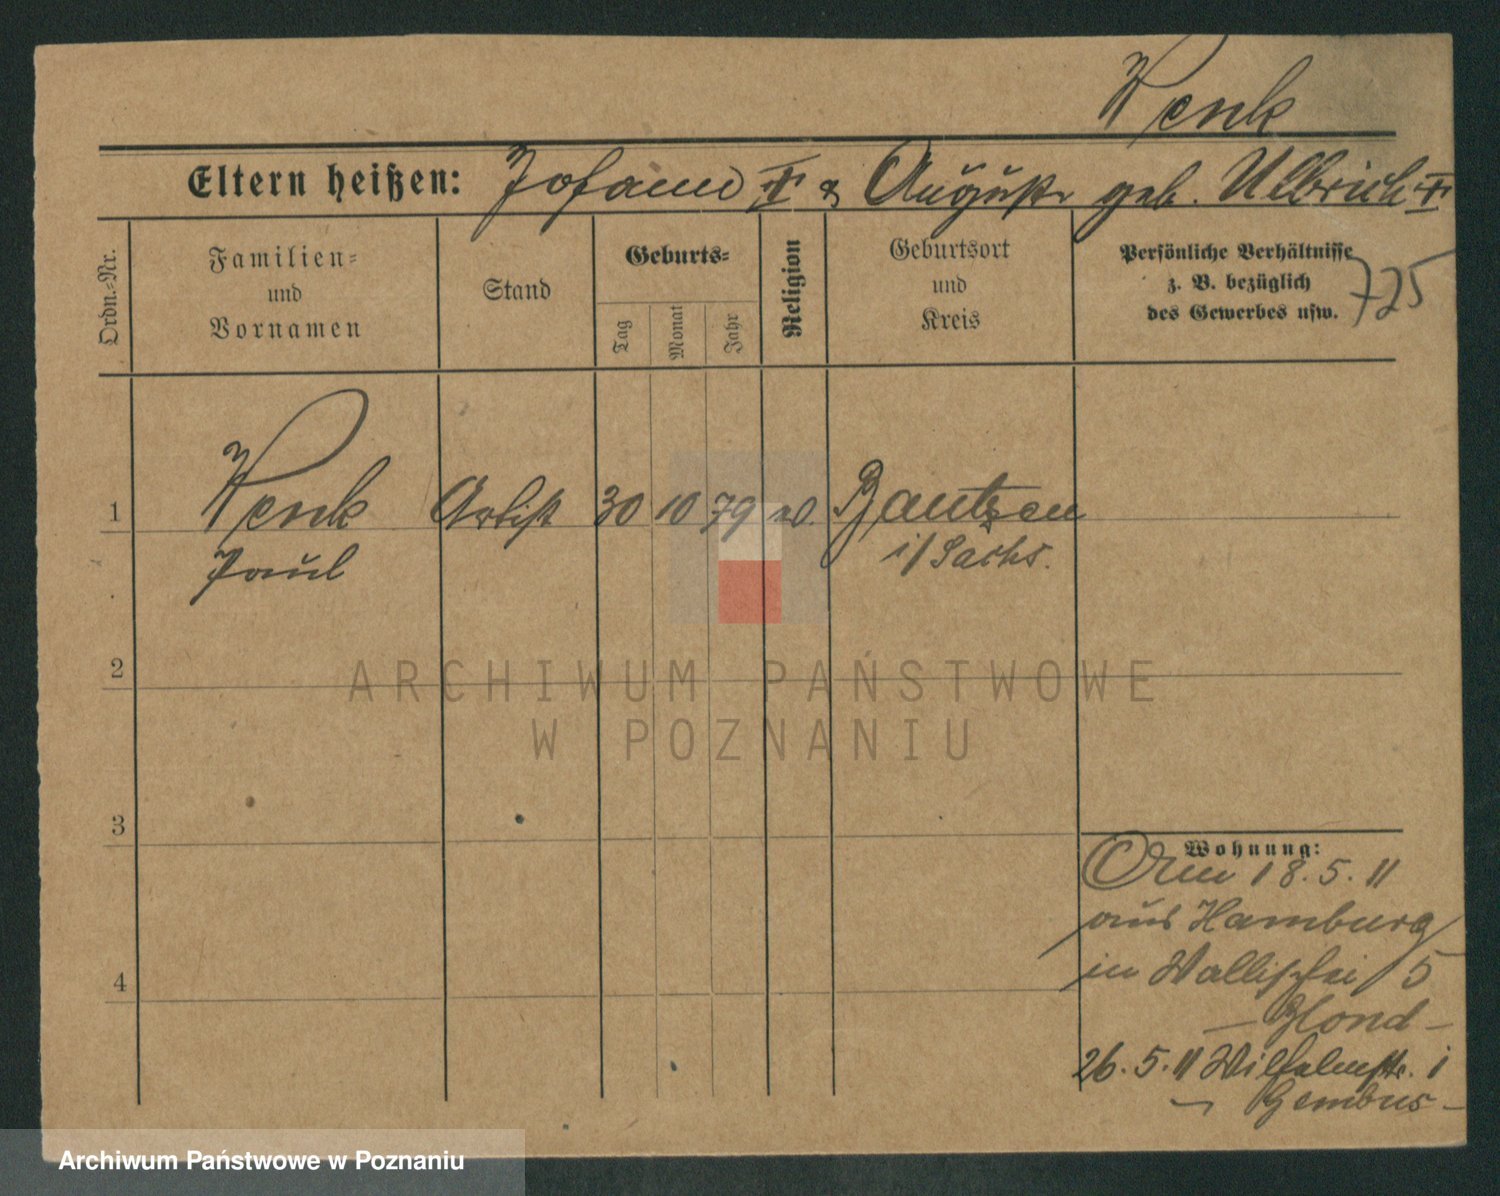 Wenk
Eltern heißen: Johann † & Auguste geb. Ulbrich †
Ordn.=Nr.
Familien=
und
Vornamen
Stand
Geburts=
Tag
Monat
Jahr
Religion
Geburtsort
und
Kreis
Persönliche Verhältnisse
z. B. bezüglich
des Gewerbes usw.
725
1 Wenk Artist 30 10 79 Bautzen
Paul i/Sachs.
2
3
4
Wohnung:
18.5.11
aus Hamburg
in Wallischei 5
26.5.11 Wilhelmstr. 1
ARCHIWUM PAŃSTWOWE
W POZNANIU
Archiwum Państwowe w Poznaniu